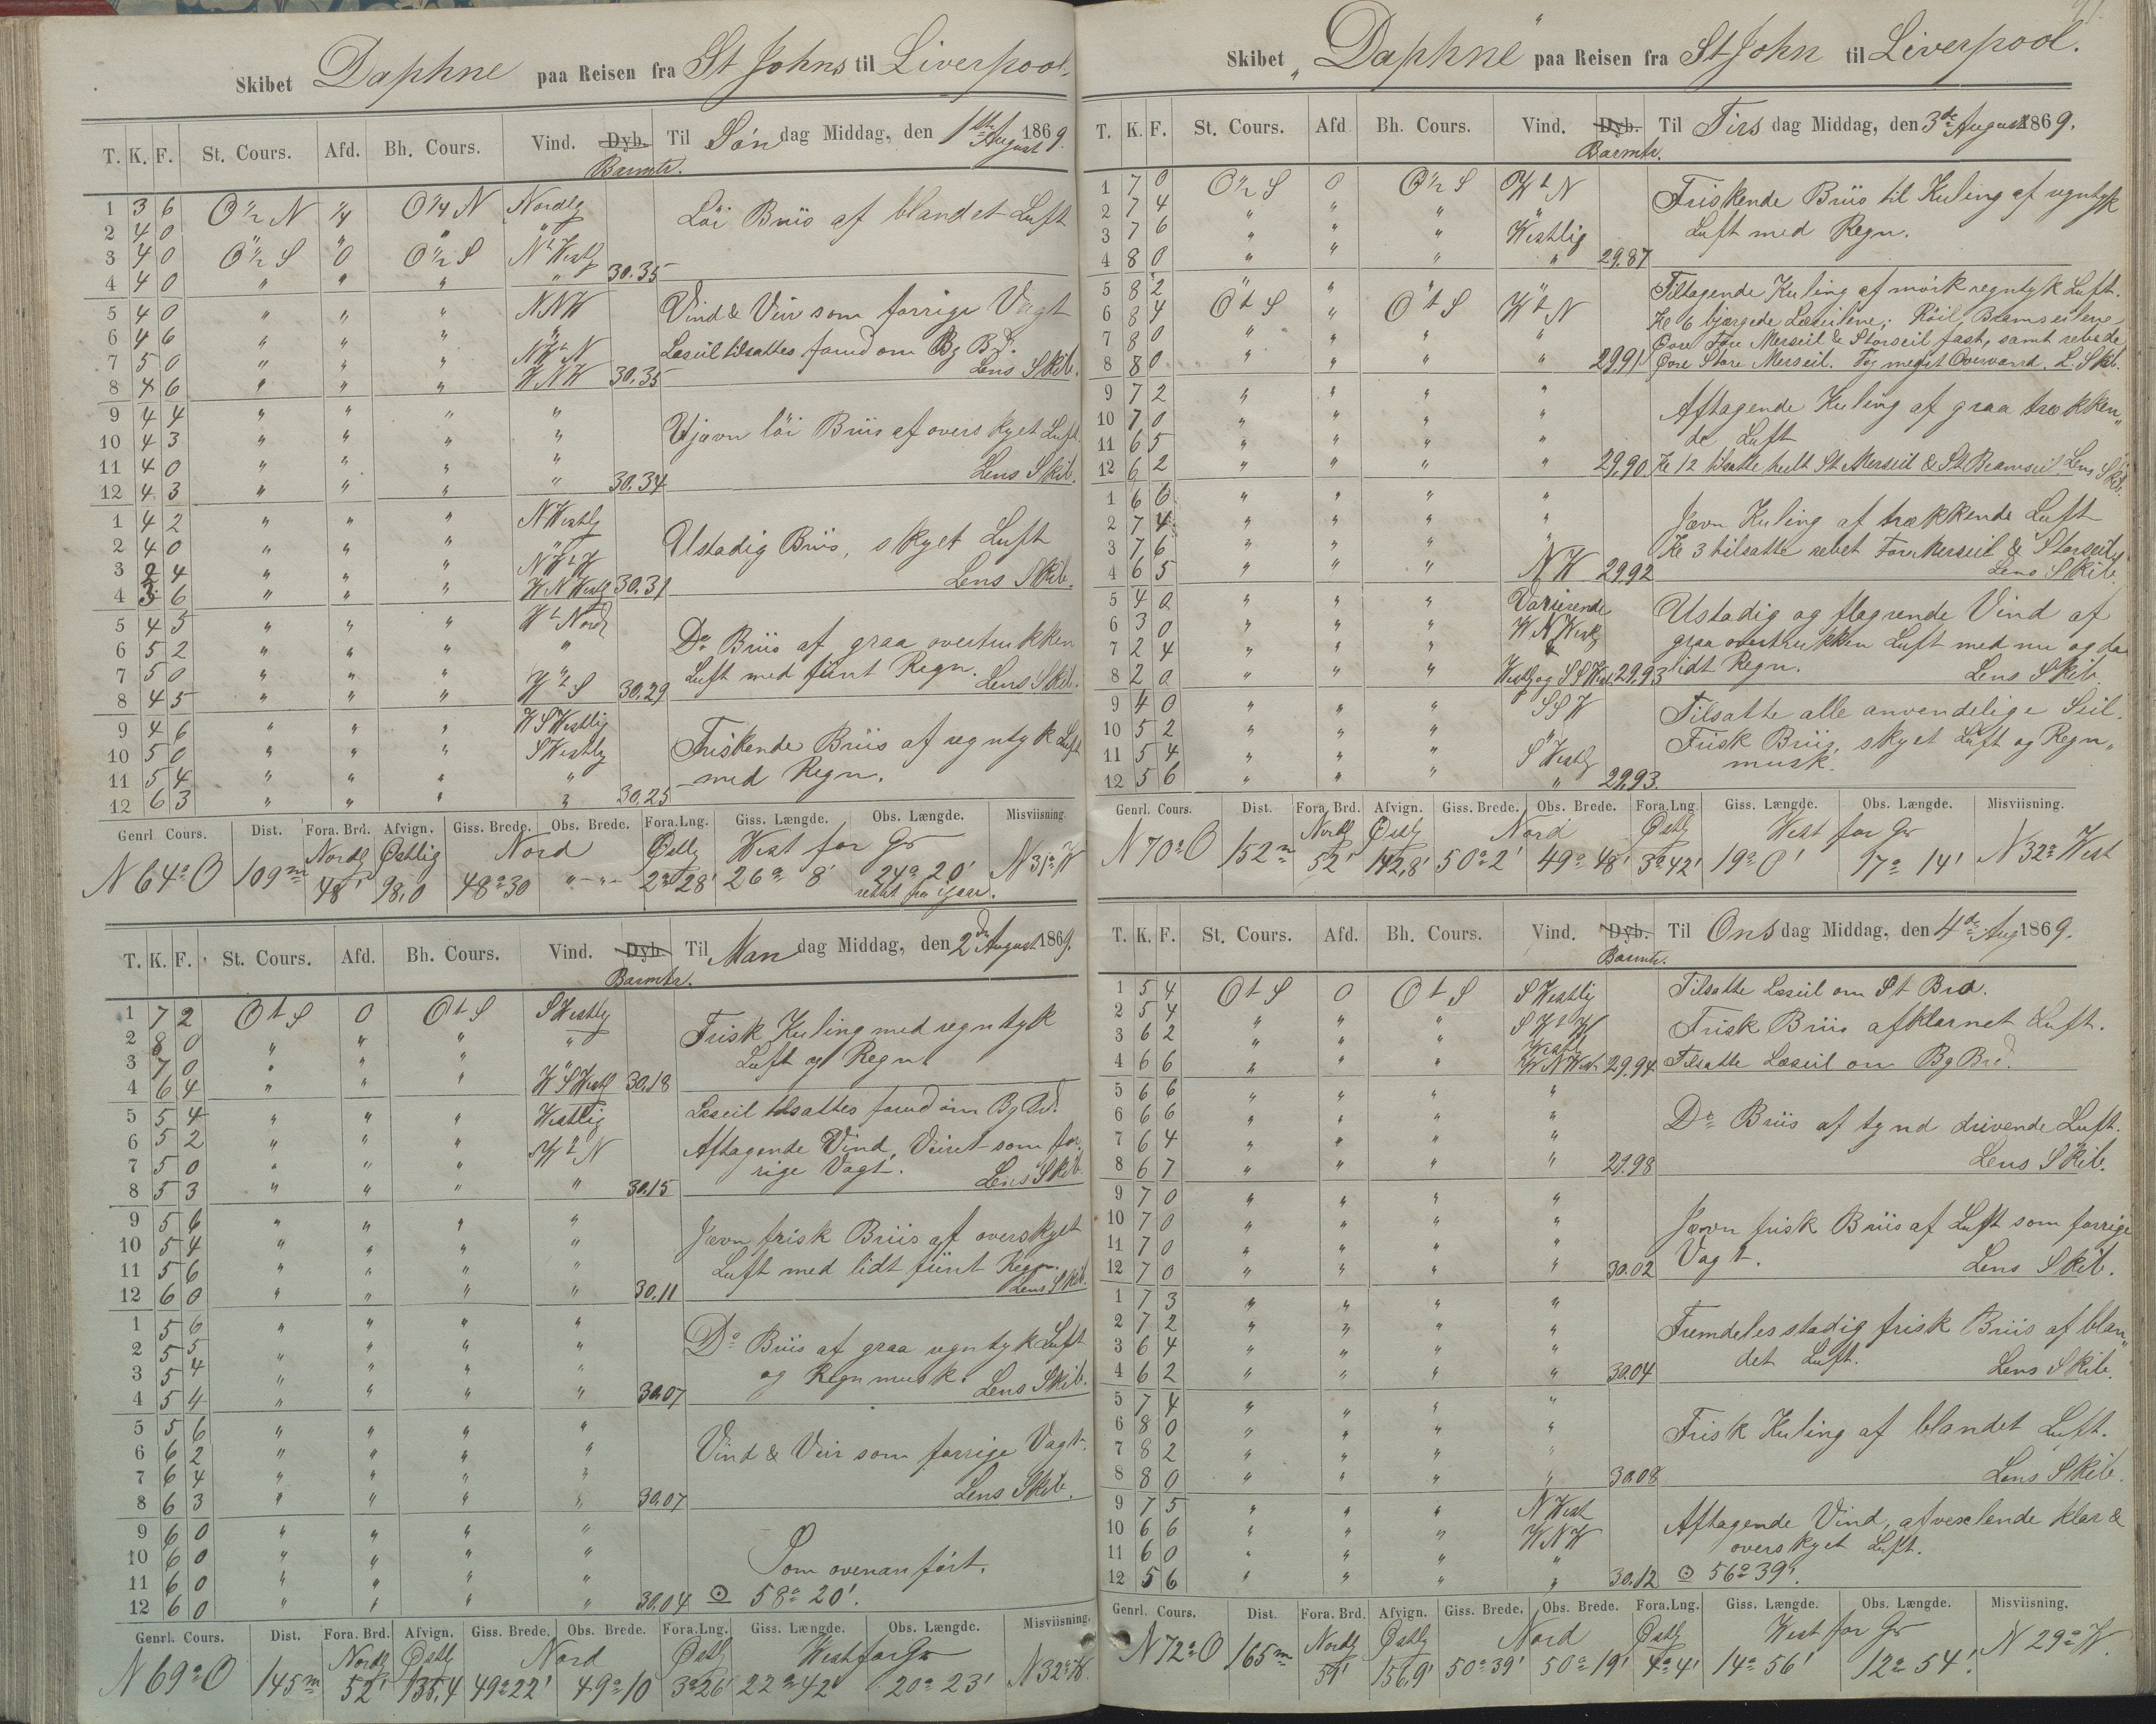 Skibet Daphne paa Reisen fra St Johns til Liverpool.
T. K. F. St. Cours. Afd. Bh. Cours. Vind. Dyb. Til Søndag Middag, den 1ste August 1869.
Barmtr.
1 3 6 O ½ N ¼ O ¼ N Nordlg
2 4 0 " " " "
3 4 0 O ½ S 0 O ½ S N t Westlg
4 4 0 " " " " 30.35
Löi Briis af blandet Luft
5 4 0 " " " NNW
6 4 6 " " " "
7 5 0 " " " NW t N
8 4 6 " " " WNW 30.35
Vind & Veir som forrige Vagt
Læseil tilsattes forud om Bg Bd.
Lens Skib.
9 4 4 " " " "
10 4 3 " " " "
11 4 0 " " " "
12 4 3 " " " " 30.34
Ujævn löi Briis af overskyet Luft
Lens Skib.
1 4 2 " " " NWestlg
2 4 0 " " " "
3 2 4 " " " NW t W
4 3 6 " " " WNWestlg 30.31
Ustadig Briis, skyet Luft
Lens Skib.
5 4 5 " " " W t Nord
6 5 2 " " " "
7 5 0 " " " "
8 4 5 " " " W t S 30.29
Do Briis af graa overtrukken
Luft med fiint Regn. Lens Skib.
9 4 6 " " " WSWestlig
10 5 0 " " " SWestlg
11 5 4 " " " "
12 6 3 " " " " 30.25
Friskende Briis af regntyk Luft
med Regn.
Genrl. Cours. Dist. Fora. Brd. Afvign. Giss. Brede. Obs. Brede. Fora.Lng. Giss. Længde. Obs. Længde. Misviisning.
Nordlg Østlig Nord Østlg West for Gr
N 64° O 109m 48' 98,0 48° 30 " - " - 2° 28' 26° 8' 24° 20' N 31° W
rettet fra igaar.
T. K. F. St. Cours. Afd. Bh. Cours. Vind. Dyb. Til Mandag Middag, den 2den August 1869.
Barmtr.
1 7 2 O t S 0 O t S SWestlg
2 8 0 " " " "
3 7 0 " " " "
4 6 4 " " " WSWestl 30.18
Frisk Kuling med regntyk
Luft og Regn
5 5 4 " " " Westlig
6 5 2 " " " W t N
7 5 0 " " " "
8 5 3 " " " " 30.15
Læseil tilsattes forud om Bg Bd.
Aftagende Vind, Veiret som for-
rige Vagt. Lens Skib.
9 5 6 " " " "
10 5 4 " " " "
11 5 6 " " " "
12 6 0 " " " " 30.11
Jævn frisk Briis af overskyet
Luft med lidt fiint Regn.
Lens Skib.
1 5 6 " " " "
2 5 5 " " " "
3 5 4 " " " "
4 5 4 " " " " 30.07
Do Briis af graa regntyk Luft
og Regnmusk. Lens Skib.
5 5 6 " " " "
6 6 2 " " " "
7 6 4 " " " "
8 6 3 " " " " 30.07
Vind & Veir som forrige Vagt.
Lens Skib.
9 6 0 " " " "
10 6 0 " " " "
11 6 0 " " " "
12 6 0 " " " " 30.04
Som ovenanført.
☉ 58° 20'.
Genrl. Cours. Dist. Fora. Brd. Afvign. Giss. Brede. Obs. Brede. Fora.Lng. Giss. Længde. Obs. Længde. Misviisning.
Nordlg Østlg Nord Østlg West for Gr
N 69° O 145m 52' 135,4 49° 22' 49° 10 3° 26' 22° 42' 20° 23' N 32° W.
Skibet "Daphne" paa Reisen fra St John til Liverpool.
T. K. F. St. Cours. Afd Bh. Cours. Vind. Dyb. Til Tirsdag Middag, den 3de August 1869.
Barmtr.
1 7 0 O ½ S 0 O ½ S W t N
2 7 4 " " " "
3 7 6 " " " Westlig
4 8 0 " " " " 29.87
Friskende Briis til Kuling af regntyk
Luft med Regn.
5 8 2 " " " "
6 8 4 O t S " O t S W t N
7 8 0 " " " "
8 8 0 " " " " 29.91
Tiltagende Kuling af mörk regntyk Luft.
Kl 6 bjærgede Læseilene; Röil, Bramseilene
Øvre Fore Merseil & Storseil fast, samt rebede
Øvre Store Merseil. Tog meget Overvand. L. Skib.
9 7 2 " " " "
10 7 0 " " " "
11 6 5 " " " "
12 6 2 " " " " 29.90
Aftagende Kuling af graa trækken„
de Luft
Kl 12 tilsatte heelt St Merseil & St Bramseil Lens Skib.
1 6 6 " " " "
2 7 4 " " " "
3 7 6 " " " "
4 6 5 " " " NW 29.92
Jævn Kuling af trækkende Luft
Kl 3 tilsatte rebet Foremerseil & Storseil
Lens Skib.
5 4 0 " " " Varierende
6 3 0 " " " WNWestlg
7 2 4 " " " &
8 2 0 " " " Westlg og SSWest 29.93
Ustadig og flagrende Vind af
graa overtrukken Luft med nu og da
lidt Regn. Lens Skib.
9 4 0 " " " SSW
10 5 2 " " " "
11 5 4 " " " SWestlg
12 5 6 " " " " 29.93
Tilsatte alle anvendelige Seil.
Frisk Briis, skyet Luft og Regn„
musk.
Genrl. Cours. Dist. Fora. Brd. Afvign. Giss. Brede. Obs. Brede. Fora.Lng. Giss. Længde. Obs. Længde. Misviisning.
Nordlg Østlg Nord Østlg West for Gr
N 70° O 152m 52' 142,8' 50° 2' 49° 48' 3° 42' 19° 0' 17° 14' N 32° West
T. K. F. St. Cours. Afd. Bh. Cours. Vind. Dyb. Til Onsdag Middag, den 4de Aug 1869.
Barmtr.
1 5 4 O t S 0 O t S SWestlig
2 5 4 " " " SW t W
3 6 2 " " " Westlg
4 6 6 " " " WNWest 29.94
Tilsatte Læseil om St Bra.
Frisk Briis afklarnet Luft.
Tilsatte Læseil om Bg Brd.
5 6 6 " " " "
6 6 6 " " " "
7 6 4 " " " "
8 6 7 " " " " 29.98
Do Briis af tynd drivende Luft.
Lens Skib.
9 7 0 " " " "
10 7 0 " " " "
11 7 0 " " " "
12 7 0 " " " " 30.02
Jævn frisk Briis af Luft som forrige
Vagt. Lens Skib.
1 7 3 " " " "
2 7 2 " " " "
3 6 4 " " " "
4 6 2 " " " " 30.04
Fremdeles stadig frisk Briis af blan„
det Luft. Lens Skib.
5 7 4 " " " "
6 8 0 " " " "
7 8 2 " " " "
8 8 0 " " " " 30.08
Frisk Kuling af blandet Luft.
Lens Skib.
9 7 5 " " " NWest
10 6 6 " " " WNW
11 6 0 " " " "
12 5 6 " " " " 30.12
Aftagende Vind, afvexlende klar &
overskyet Luft.
☉ 56° 39'.
Genrl. Cours. Dist. Fora. Brd. Afvign. Giss. Brede. Obs. Brede. Fora.Lng. Giss. Længde. Obs. Længde. Misviisning.
Nordlg Østlg Nord Østlg West for Gr
N 72° O 165m 51' 156,9' 50° 39' 50° 19' 4° 4' 14° 56' 12° 54'. N 29° W.